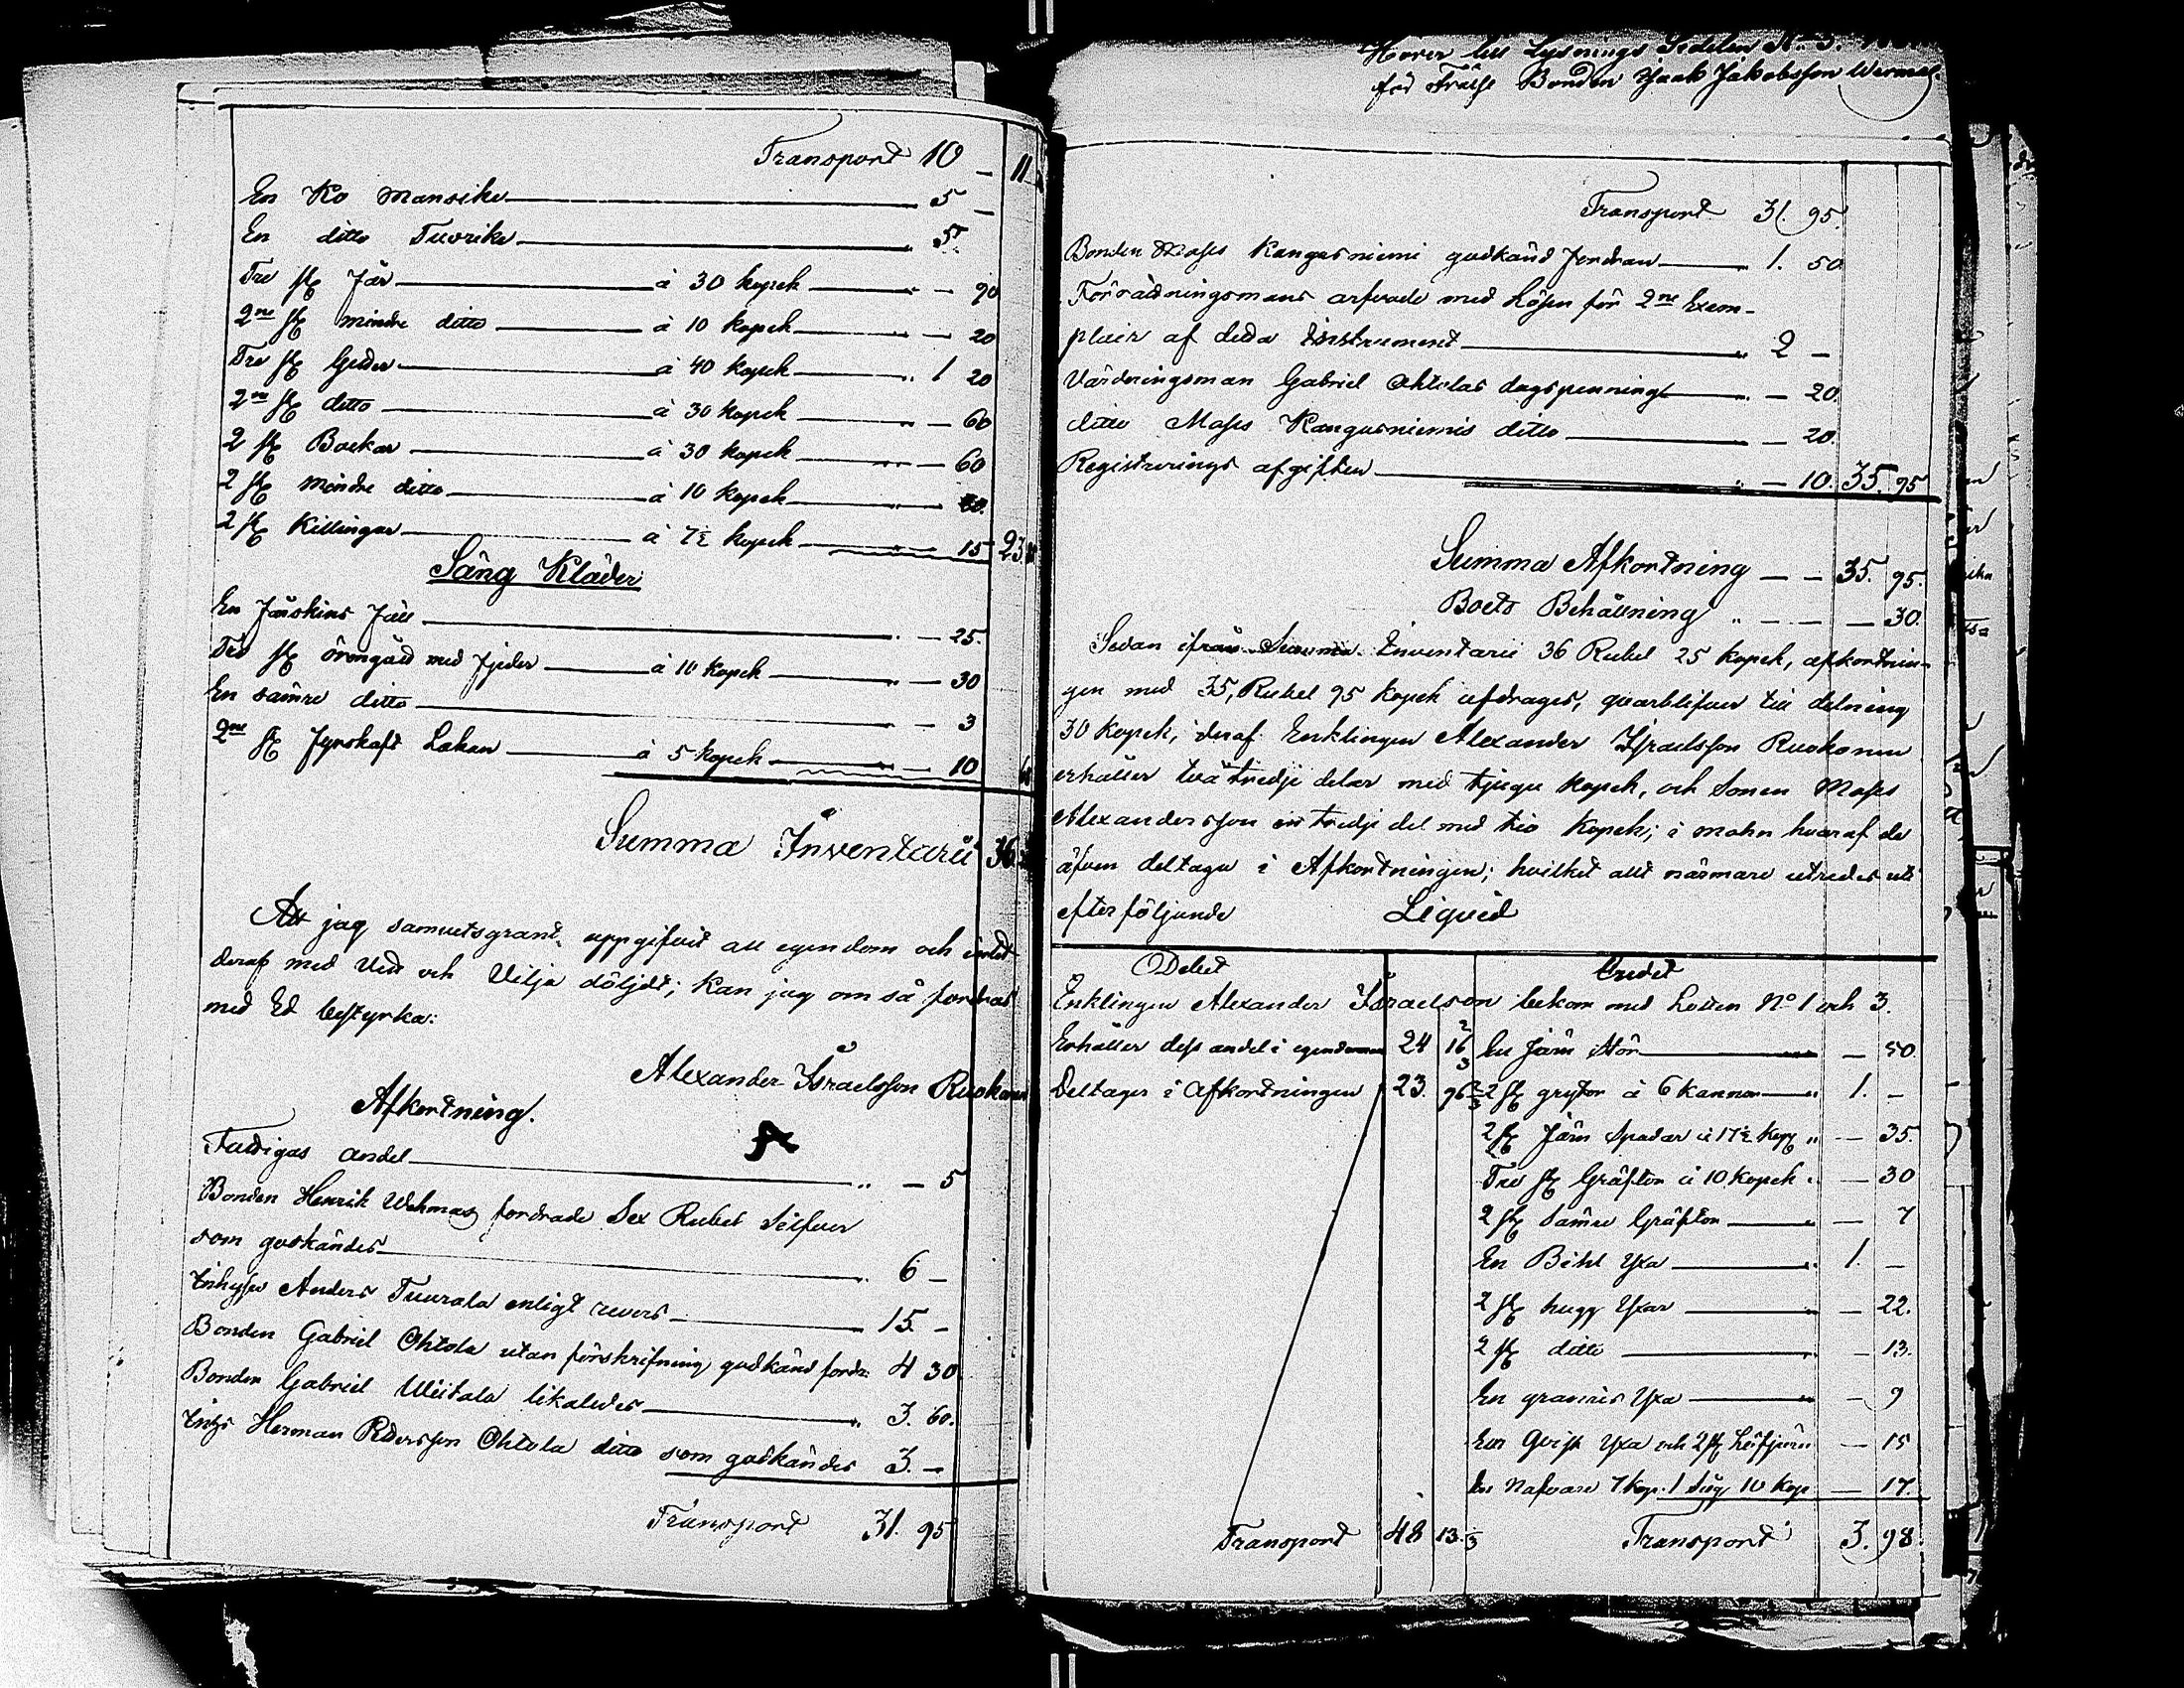 Transport 10 — 11
En Ko Mansike 5 —
En ditto Tuorike 5 "
Tre st Får à 30 kopek " — 90
2ne st mindre ditto à 10 kopek " — 20
Tre st Getter à 40 kopek " 1 20
2ne st ditto à 30 kopek " — 60
2 st Bockar à 30 kopek " — 60
2 st mindre ditto à 10 kopek " — 20.
2 st Killingar à 7½ kopek " — 15 23
Säng Kläder
En Fårskins Fäll " — 25.
Tre st örongått med fjeder à 10 kopek " — 30
En sämre ditto " — 3
2ne st Fyrskaft Lakan à 5 kopek " — 10
Summa Inventarii 36
Att jag samvetsgrant uppgifvit all egendom och intet
deraf med Vett och Vilja döljdt; kan jag om så fordras
med Ed bestyrka:
Alexander Israelsson Ruokonen
Afkortning.
Fattigas andel " — 5
Bonden Henrik Wehmas fordrade Sex Rubel Silfver
som godkändes " 6 —
Inhyses Anders Tuurala enligt revers 15. —
Bonden Gabriel Ohtola utan förskrifning godkänd fordr. 4 30
Bonden Gabriel Wiitala likaledes " 3. 60.
Inhys Herman Persson Ohtola ditto som godkändes 3. —
Transport 31. 95
Hörer till Lysnings Sedeln No 3.
för Frälse Bonden Isaak Jakobsson
Transport 31. 95.
Bonden Mats Kangasniemi godkänd fordran " 1. 50
Förrättningsmans arfvode med Lösen för 2ne Exem-
plair af detta Instrument " 2 —
Värderingsman Gabriel Ohtolas dagspenning " — 20.
ditto Mats Kangasniemis ditto " — 20.
Registrerings afgiften " — 10. 35. 95
Summa Afkortning — — 35. 95.
Boets Behållning " — — — 30.
Sedan ifrån Summa Inventarii 36 Rubel 25 kopek, afkortnin-
gen med 35, Rubel 95 kopek afdrages, qvarblifver till delning
30 kopek, deraf Enklingen Alexander Israelsson Ruokonen
erhåller två tredje delar med tjugu kopek, och Sonen Mats
Alexandersson en tredje del med tio kopek; i mohn hvaraf de
äfven deltaga i Afkortningen; hvilket allt närmare utredes uti
efterföljande Liqvid
Debet Credit
Enklingen Alexander Israelson bekom med Lotten No 1 och 3.
Erhåller dess andel i egendomen 24 16⅔ En Järn Stör — 50
Deltager i Afkortningen 23. 96⅔ 2 st grytor à 6 kannor " 1. —
2 st Järn Spadar à 17½ kop " — 35.
Tre st Gräftor à 10 kopek " — 30
2 st sämre Gräftor " — 7
En Bihl Yxa " 1. —
2 st hugg Yxor " — 22.
2 st ditto " — 13.
En grannris Yxa " — 9
En Qvist Yxa och 2 st Löfjern — 15
En Nafvare 7 kop. 1 Såg 10 kop — 17.
Transport 48 13⅓ Transport 3. 98.